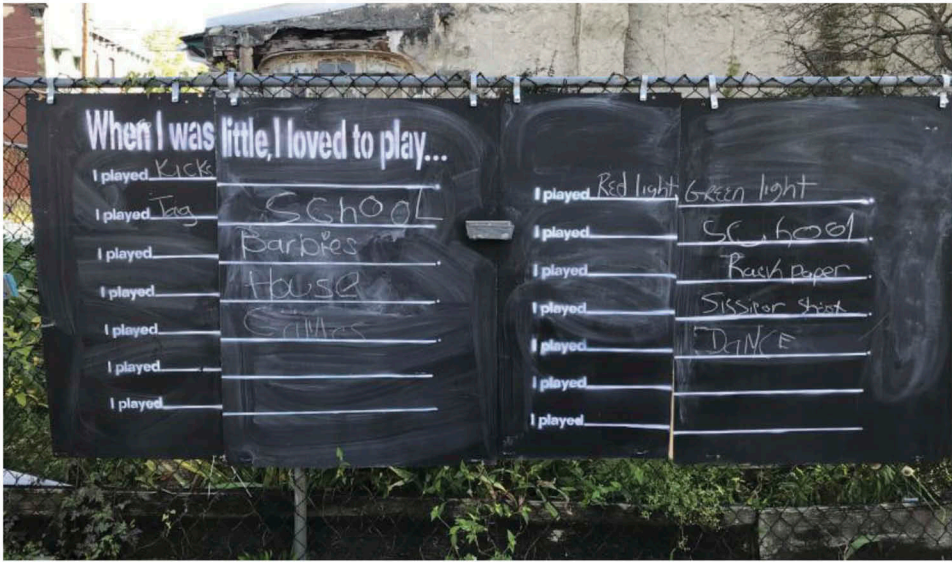 When I was little, I loved to play...
I played Kicks
I played Tag SChOOL
I played Barbies
I played House
I played
I played
I played
I played Red light Green light
I played SChool
I played Rack paper
I played Sissior shoot
I played DaNCE
I played
I played